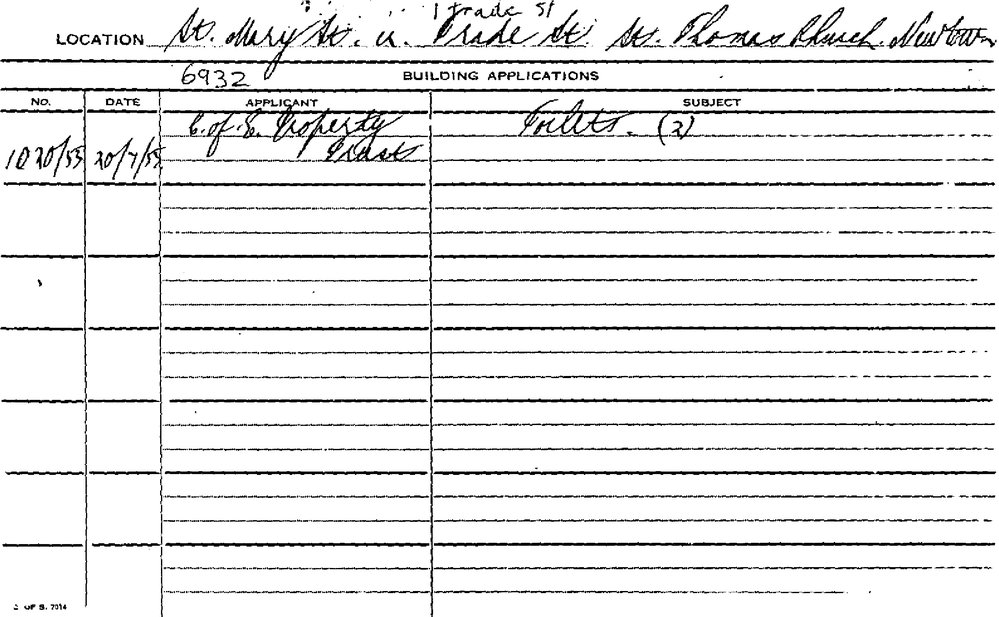 1 Trade St
LOCATION St. Mary St. & Trade St. St. Thomas Church. Newtown
6932 BUILDING APPLICATIONS
NO. DATE APPLICANT SUBJECT
C. of E. Property Toilets. (2)
1020/55 20/7/55 Trust
OF S. 7014